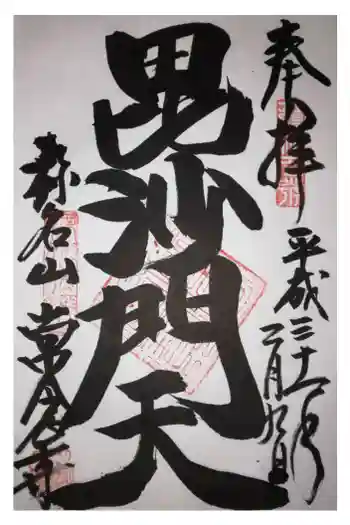 奉拝
平成三十一年
二月九日
毘沙門天
称名山
常念寺